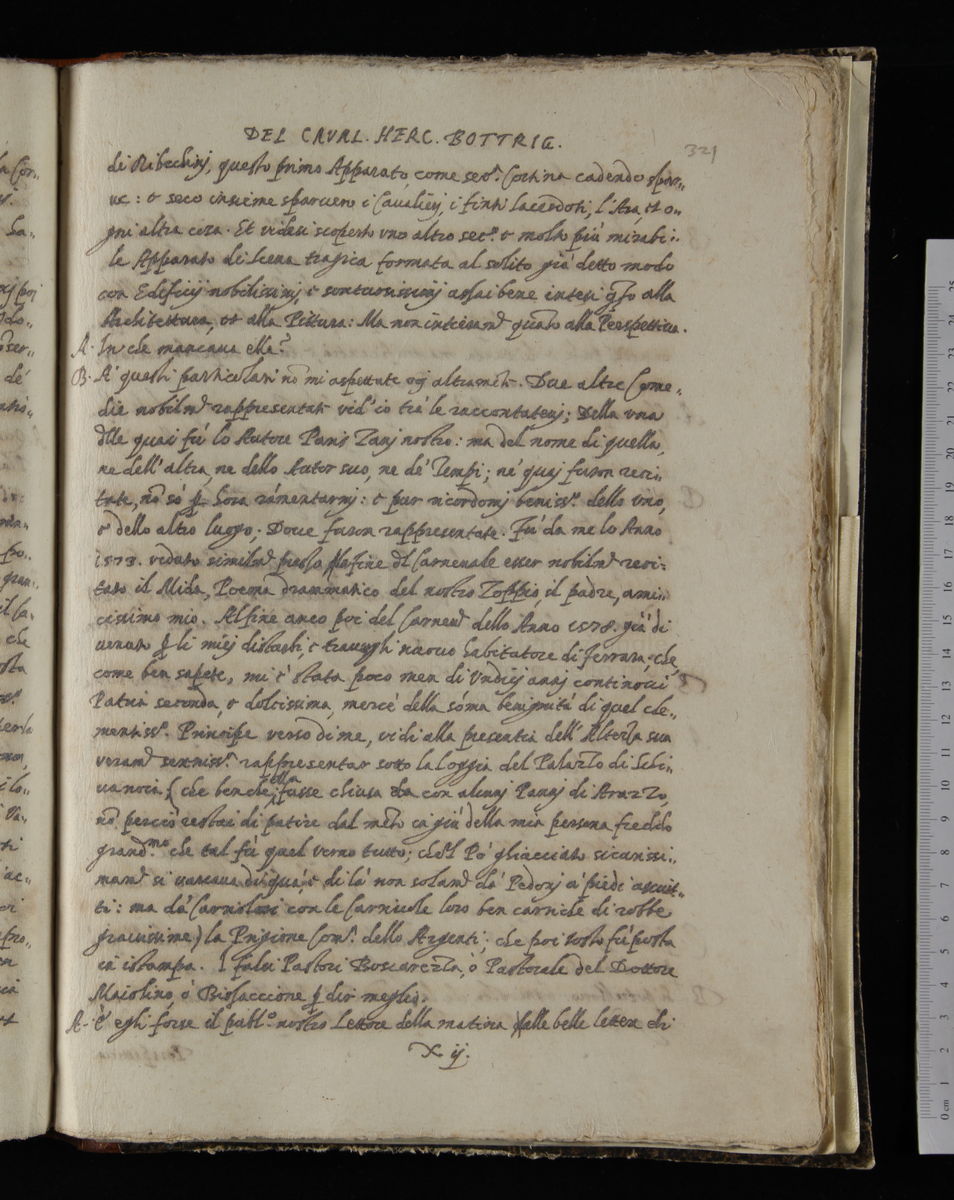 DEL CAVAL. HERC. BOTTRIG.
321
di Ribechini, questo primo Apparato, come sec.ª Cortina cadendo spar„
ue: & seco insieme sparuero i Cavalieri, i finti sacerdoti, l'Ara, et o„
gni altra cosa. Et videsi scoperto uno altro sec.º & molto più mirabi„
le Apparato di Scena tragica formata al solito già detto modo
con Edificij nobilissimi, e sontuosissimi assai bene intesi q.to alla
Architettura, et alla Pittura: Ma non interam.e quanto alla Perspettiva.
A. In che mancaua ella?
B. A' questi particolari nõ mi aspettate ogi altramẽte. Due altre Come„
die nobilm.e rappresentate vid'io trà le raccontateui; Della vna
dlle quai fù lo Autore Paris Zani nostro: ma del nome di quella,
ne dell'altra, ne dello Autor suo, ne de' Tempi; ne' quai furon reci„
tate, nõ sò p hora ramentarmi: e pur ricordomi beniss.º dello vno,
& dello altro luogo; Doue furon rappresentate. Fù da me lo Anno
1573. veduto similm.e presso la fine dl Carneuale esser nobilm.e reci„
tato il Mida, Poema drammatico del nostro Zoppio, il padre, ami„
cissimo mio. Al fine anco poi del Carneu.e dello Anno 1578. già di
uenuto p li miei disturbi, e trauagli nuouo habitatore di Ferrara, che,
come ben sapete, mi è stata poco men di Vndici anni continoui
Patria seconda, & dolcissima, mercè della sõma benignità di quel cle„
mentiss.º Principe verso di me, vidi alla presentia dell'Altezza sua
veram.e sereniss.ª rappresentar sotto la loggia del Palazzo di Schi„
uanoia, (che benche ella fusse chiusa con alcuni Panni di Arazzo,
nõ perciò restai di patire dal mezo in giù della mia persona freddo
grand.mo che tal fù quel verno tutto; che'l Pò ghiacciato sicurissi„
mam.e si uarcaua di quà, e di là non solam.e da' Pedoni a' piedi asciut„
ti: ma da' Carriolini con le Carriuole loro ben cariche di robbe
grauissime) la Prigione Com.ª dello Argenti; che poi tosto fù posta
in istampa. I falsi Pastori Boscarezza, ò Pastorale del Dottore
Maiolino, ò Bisaccione p dir meglio.
A. È egli forse il publ.º nostro Lettore della matina dalle belle lettere di
X ij.